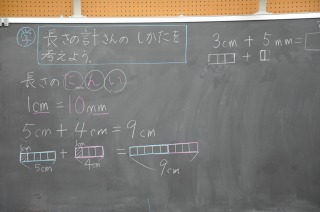 学 長さの計さんのしかたを
考えよう。
長さのたんい
1cm = 10mm
5cm + 4cm = 9cm
1cm 1cm
5cm 4cm 9cm
3cm + 5mm =
+